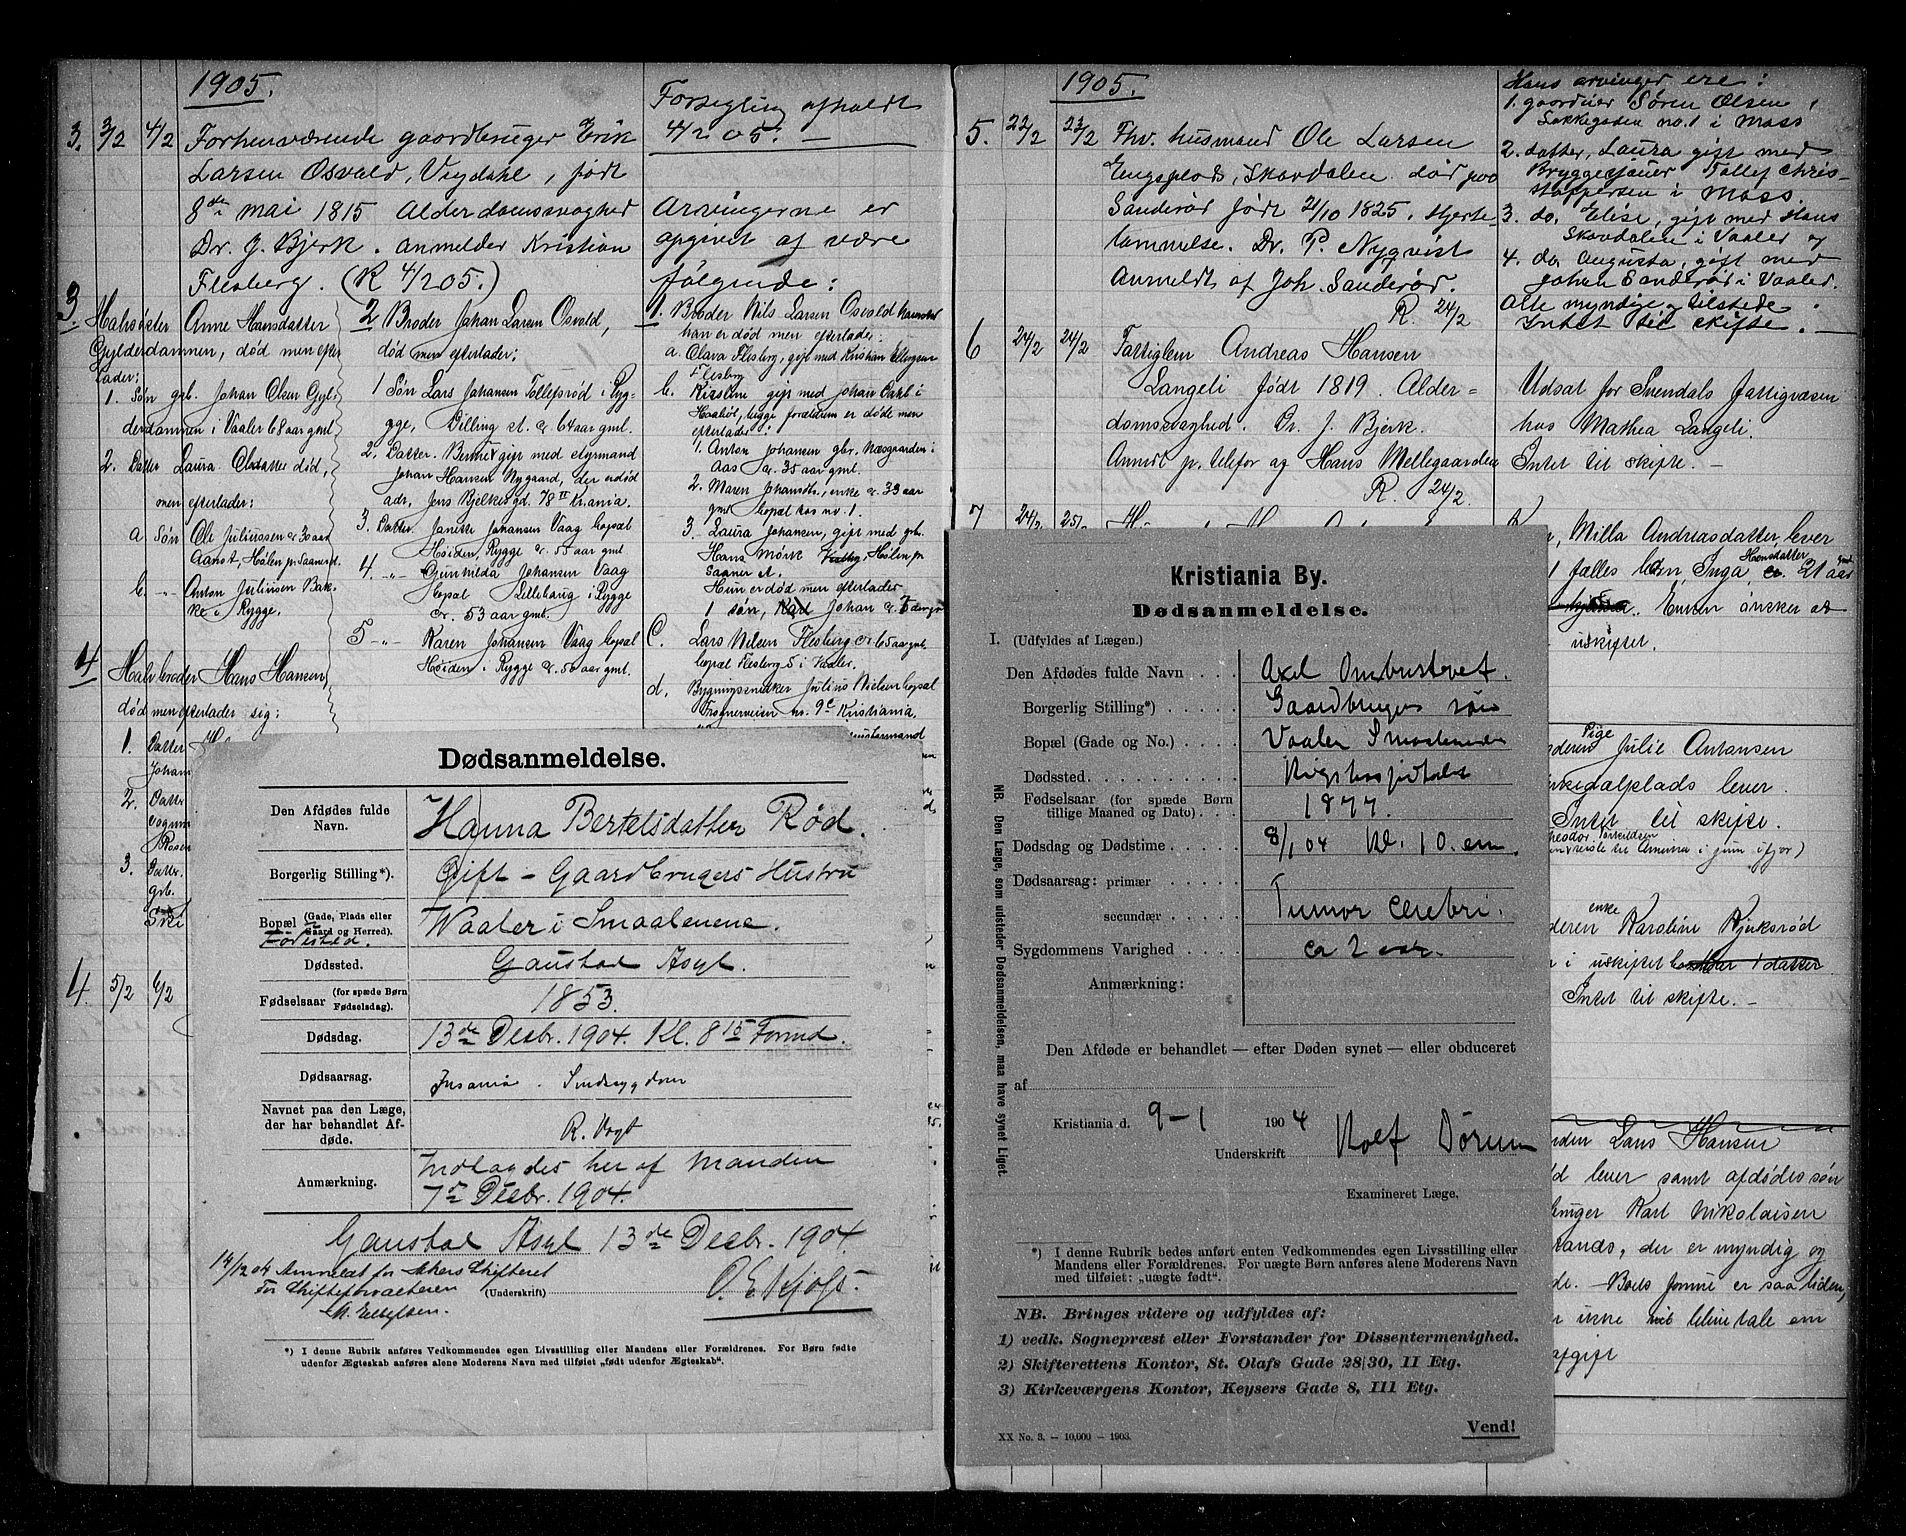 1905.
3. 3/2 4/2 Forhenværende gaardbruger Erik
Larsen Osvald, Vegdahl, født
8de mai 1815 Alderdomssvaghed
Dr. J. Bjerk. anmelder Kristian
Flesberg. (R 4/2 05.)
Forsegling afholdt
4/2 05. —
Arvingerne er
opgivet at være
følgende:
1. Broder Nils Larsen Osvald
han er død men efterlader:
a. Olava Flesberg, gift med Kristian Ellingsen
Flesberg
b. Kirstine gift med Johan Dahl i
Haabøl, begge forældrene er døde men
efterlader:
1. Anton Johansen gbr. Næsgaarden i
Aas cr. 35 aar gml.
2. Maren Johansdtr., enke cr. 33 aar
gml bopæl hos no. 1
3. Laura Johansen, gift med grb.
Hans Mørk Hølen pr.
Saaner st.
Hun er død men efterlader
1 søn, Karl Johan cr. 7
c. Lars Nilsen Flesberg cr 65 aar gml.
bopæl Flesberg i Vaaler.
d. Bygningssnekker Julius Nielsen bopæl
Frognerveien nr. 9c Kristiania.
3. Halvsøster Anne Hansdatter
Gylderdammen, død men efter
lader:
1. Søn grb. Johan Olsen Gyl-
derdammen i Vaaler 68 aar gml
2. Datter Laura Olsdatter død,
men efterlader:
a Søn Ole Juliussen cr 30 aar
Aanst, Hølen pr Saanerst.
b. -"- Anton Juliusen Bak-
ke i Rygge.
2 Broder Johan Larsen Osvald,
død men efterlader:
1 Søn Lars Johansen Tollefsrød i Ryg-
gge, Dilling st. cr 64 aar gml.
2. Datter. Berthe gift med styrmand
Johan Hansen Nygaard, der er død
adr, Jens Bjelkesgd. 78 II Kr.ania.
3. Datter. Janikke Johansen Vaag bopæl
Høiden, Rygge cr. 55 aar gml
4. -"- Gunhilda Johansen Vaag
bopæl Lillehaug i Rygge
cr. 53 aar gml.
5 -"- Karen Johansen Vaag bopæl
Høiden i Rygge cr. 50 aar gml.
4 Halvbroder Hans Hansen,
død men efterlader sig:
1. Datter
Johan
2. Datter
vognm
Rosen
3. Datter.
grb.
Ski
4. 5/2 6/2
Dødsanmeldelse.
Den Afdødes fulde
Navn.
Hanna Bertelsdatter Rød.
Borgerlig Stilling*).
Gift – Gaardbrugers Hustru
Bopæl (Gade, Plads eller
Gaard og Herred).
Fødested.
Waaler i Smaalenene.
Dødssted.
Gaustad Asyl.
Fødselsaar (for spæde Børn
Fødselsdag).
1853.
Dødsdag.
13de Decbr. 1904. Kl. 8 15 Formd.
Dødsaarsag.
Insania. Sindssygdom
Navnet paa den Læge,
der har behandlet Af-
døde.
R. Vogt
Anmærkning.
Indlagdes her af Manden
7de Decbr. 1904.
Gaustad Asyl 13de Decbr. 1904.
14/12 04 Anmeldt for Akers Skifteret
For Skifteforvalteren
(Underskrift)
*) I denne Rubrik anføres Vedkommendes egen Livsstilling eller Mandens eller Forældrenes. For Børn fødte
udenfor Ægteskab anføres alene Moderens Navn med tilføiet „født udenfor Ægteskab“.
1905.
5. 22/2 23/2 Fhv. husmand Ole Larsen
Engsplads, Skovdalen død paa
Sanderød født 21/10 1825. Hjerte-
lammelse. Dr. P. Nyqvist
Anmeldt af Joh. Sanderød.
R. 24/2
Hans arvinger ere:
1. gaardeier Søren Olsen,
no. 1 i Moss
2. datter, Laura gift med
Bryggesjauer Tollef Chris-
stoffersen i Moss.
3. do. Elise, gift med Hans
Skovdalen i Vaaler og
4. do. Augusta, gift med
Johan Sanderød i Vaaler.
Alle myndige, tilstede.
Intet til skifte. —
6 24/2 24/2 Fattiglem Andreas Hansen
Langeli født 1819. Alder-
domssvaghed. Dr. J. Bjerk.
Anmdt p. telefon af Hans Mellegaarden
R. 24/2
Udsat for Svendals fattigvæsen
hos Mathea Langeli.
Intet til skifte. —
7 24/2 25/2
Milla Andreasdatter lever
1 fælles barn, Inga Hansdatter cr. 21 aar gml
Enken ønsker at
uskiftet.
Pige
Julie Antonsen
kegalplads lever.
Intet til skifte.
enke
deren Karoline Kjerksrød
r i uskiftet bo. Har 1 datter
Intet til skifte. —
Lars Hansen
ld lever samt afdødes søn
bruger Karl Nikolaisen
rands, der er myndig og
de. Boets formue er saa liden,
r ikke vil blive tale om
afgift
Kristiania By.
Dødsanmeldelse.
I. (Udfyldes af Lægen.)
Den Afdødes fulde Navn . . . Axel Ombustvet.
Borgerlig Stilling*) . . . . . Gaardbrugers søn
Bopæl (Gade og No.) . . . . Vaaler Smaalenene
Dødssted. . . . . . . . . . Rigshospitalet
Fødselsaar (for spæde Børn
tillige Maaned og Dato) . . . 1877.
Dødsdag og Dødstime . . . . 8/1 04 Kl. 10. em.
Dødsaarsag: primær . . . . .
secundær . . . . Tumor cerebri.
Sygdommens Varighed . . . . ca 2 aar.
Anmærkning:
Den Afdøde er behandlet — efter Døden synet — eller obduceret
af
Kristiania d. 9-1 1904 Rolf Dörum
Underskrift
Examineret Læge.
*) I denne Rubrik bedes anført enten Vedkommendes egen Livsstilling eller
Mandens eller Forældrenes. For uægte Børn anføres alene Moderens Navn
med tilføiet: „uægte født“.
NB. Bringes videre og udfyldes af:
1) vedk. Sognepræst eller Forstander for Dissentermenighed.
2) Skifterettens Kontor, St. Olafs Gade 28|30, II Etg.
3) Kirkeværgens Kontor, Keysers Gade 8, III Etg.
Vend!
XX No. 3. — 10,000 — 1903.
NB. Den Læge, som udsteder Dødsanmeldelsen, maa have synet Liget.